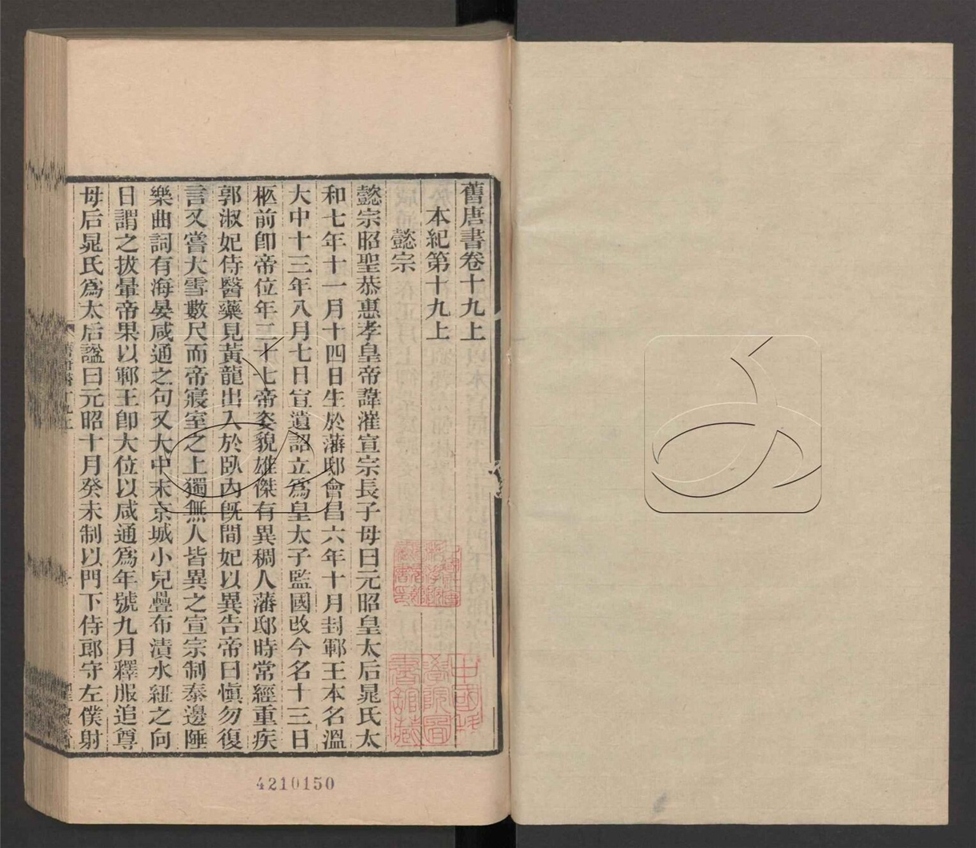 舊唐書卷十九上
本紀第十九上
懿宗
懿宗昭聖恭惠孝皇帝諱漼宣宗長子母曰元昭皇太后晁氏太
和七年十一月十四日生於藩邸會昌六年十月封鄆王本名溫
大中十三年八月七日宣遺詔立爲皇太子監國改今名十三日
柩前卽帝位年二十七帝姿貌雄傑有異稠人藩邸時常經重疾
郭淑妃侍醫藥見黃龍出入於臥內旣間妃以異告帝曰愼勿復
言又嘗大雪數尺而帝寢室之上獨無人皆異之宣宗制泰邊陲
樂曲詞有海晏咸通之句又大中末京城小兒疊布漬水紐之向
日謂之拔暈帝果以鄆王卽大位以咸通爲年號九月釋服追尊
母后晁氏爲太后謚曰元昭十月癸未制以門下侍郎守左僕射
4210150